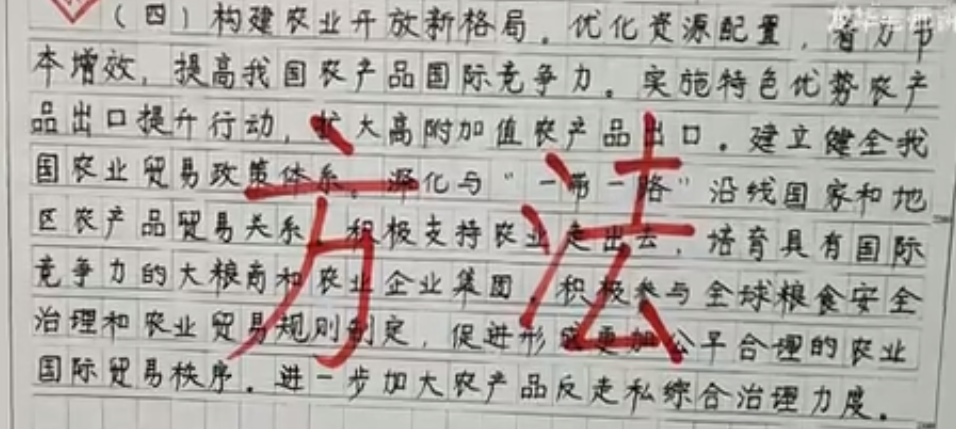 （四）构建农业开放新格局。优化资源配置，着力节
本增效，提高我国农产品国际竞争力。实施特色优势农产
品出口提升行动，扩大高附加值农产品出口。建立健全我
国农业贸易政策体系。深化与“一带一路”沿线国家和地
区农产品贸易关系。积极支持农业走出去，培育具有国际
竞争力的大粮商和农业企业集团。积极参与全球粮食安全
治理和农业贸易规则制定，促进形成更加公平合理的农业
国际贸易秩序。进一步加大农产品反走私综合治理力度。
方法